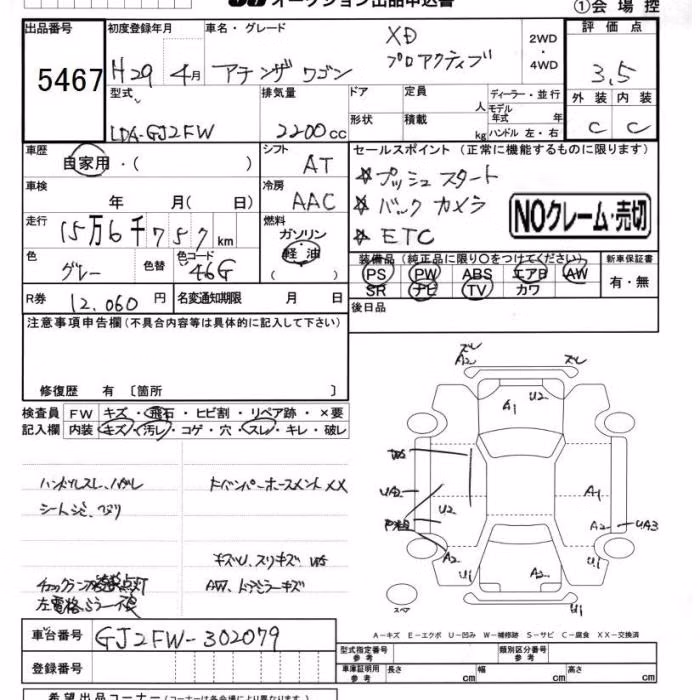 オークション出品申込書
①会場控
出品番号 初度登録年月 車名・グレード 評価点
5467 H29 4月 アテンザ ワゴン XD プロアクティブ 2WD・4WD 3.5
型式 排気量 ドア 定員 人 ディーラー・並行 外装 内装
LDA-GJ2FW 2200cc 形状 積載 kg モデル年式 年 ハンドル 左・右 C C
車歴 自家用・( ) シフト AT
セールスポイント(正常に機能するものに限ります)
☆ プッシュスタート
☆ バックカメラ
☆ ETC
NOクレーム・売切
車検 年 月( 日) 冷房 AAC
走行 15万6千757km 燃料 ガソリン 軽油 ( )
色 グレー 色替 色コード 46G
装備品(純正品に限り○をつけてください) 新車保証書
PS PW ABS エアB AW 有・無
SR ナビ TV カワ
R券 12,060円 名変通知期限 月 日
後日品
注意事項申告欄(不具合内容等は具体的に記入して下さい)
修復歴 有〔箇所 〕
検査員 FW キズ・飛石・ヒビ割・リペア跡・×要
記入欄 内装 キズ・汚レ・コゲ・穴・スレ・キレ・破レ
ハンドルスレ、ハガレ
シートシミ、ヘタリ
キズU、スリキズ
AW、ドアミラーキズ
左電格ミラー不良
ズレ A2 ズレ
A1 U2
UA2 U2 A1
A2 UA3
A2 U1 A2 U1
U1
スペア
A-キズ E-エクボ U-凹み W-補修跡 S-サビ C-腐食 XX-交換済
車台番号 GJ2FW-302079
登録番号
型式指定番号 参考 類別区分番号 参考
車庫証明用 参考 長さ cm 幅 cm 高さ cm
希望出品コーナー(コーナーは各会場により異なります)